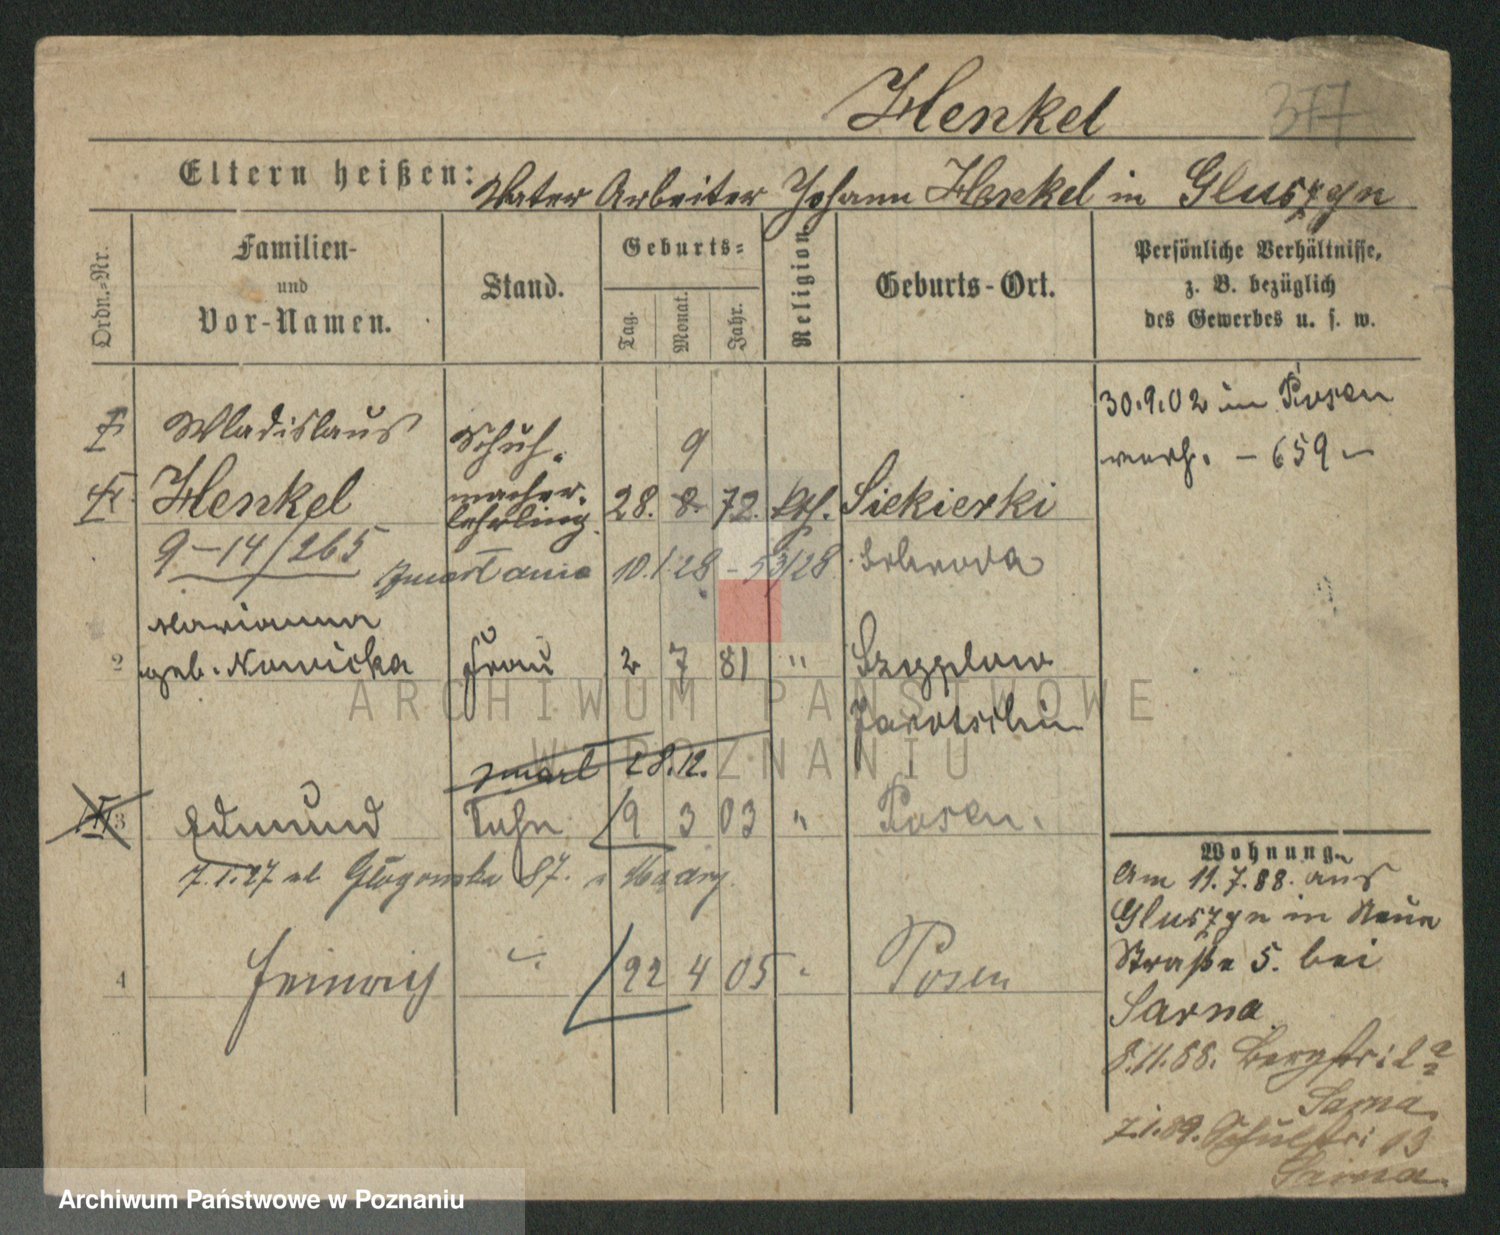 Henkel 377
Eltern heißen: Vater Arbeiter Johann Henkel in Gluszyn
Ordn.-Nr.
Familien-
und
Vor-Namen.
Stand.
Geburts-
Tag.
Monat.
Jahr.
Religion.
Geburts-Ort.
Persönliche Verhältnisse,
z. B. bezüglich
des Gewerbes u. s. w.
30.9.02 in Posen
verh. – 659 –
Wladislaus Schuh- 9
Henkel macher- 28. 8. 72. kth. Siekierki
lehrling.
9–14/265 10.1.28 – 53/28 Schroda
Marianna
2 geb. Nowicka Frau 2 7 81 " Szypplow
Jarotschin
ARCHIWUM PAŃSTWOWE
W POZNANIU
zmarł 28.12.
3 Edmund Sohn 19 3 03 " Posen.
7.1.27 ul. Głogowska 87.
4 Heinrich 22 4 05 Posen
Wohnung.
Am 11.7.88. aus
Gluszyn in Neue
Straße 5. bei
Sarna.
8.11.88. Bergstr: 2a
Sarna.
7.1.89. Schulstr: 13
Sarna.
Archiwum Państwowe w Poznaniu